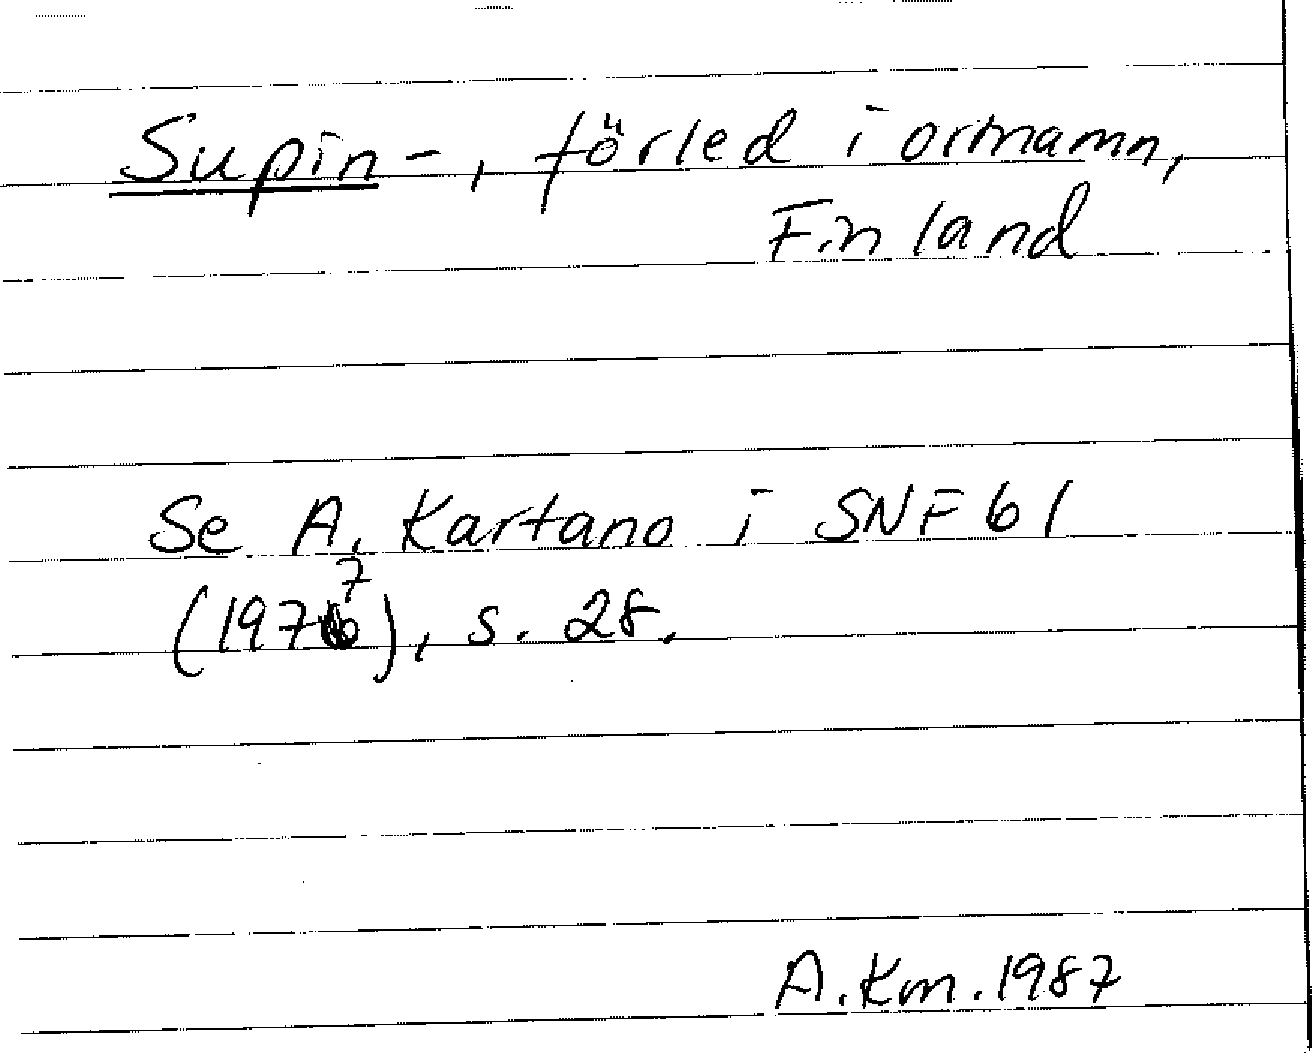 Supin-, förled i ortnamn,
Finland
Se A. Kartano i SNF 61
(1977), s. 28.
A.Km. 1987